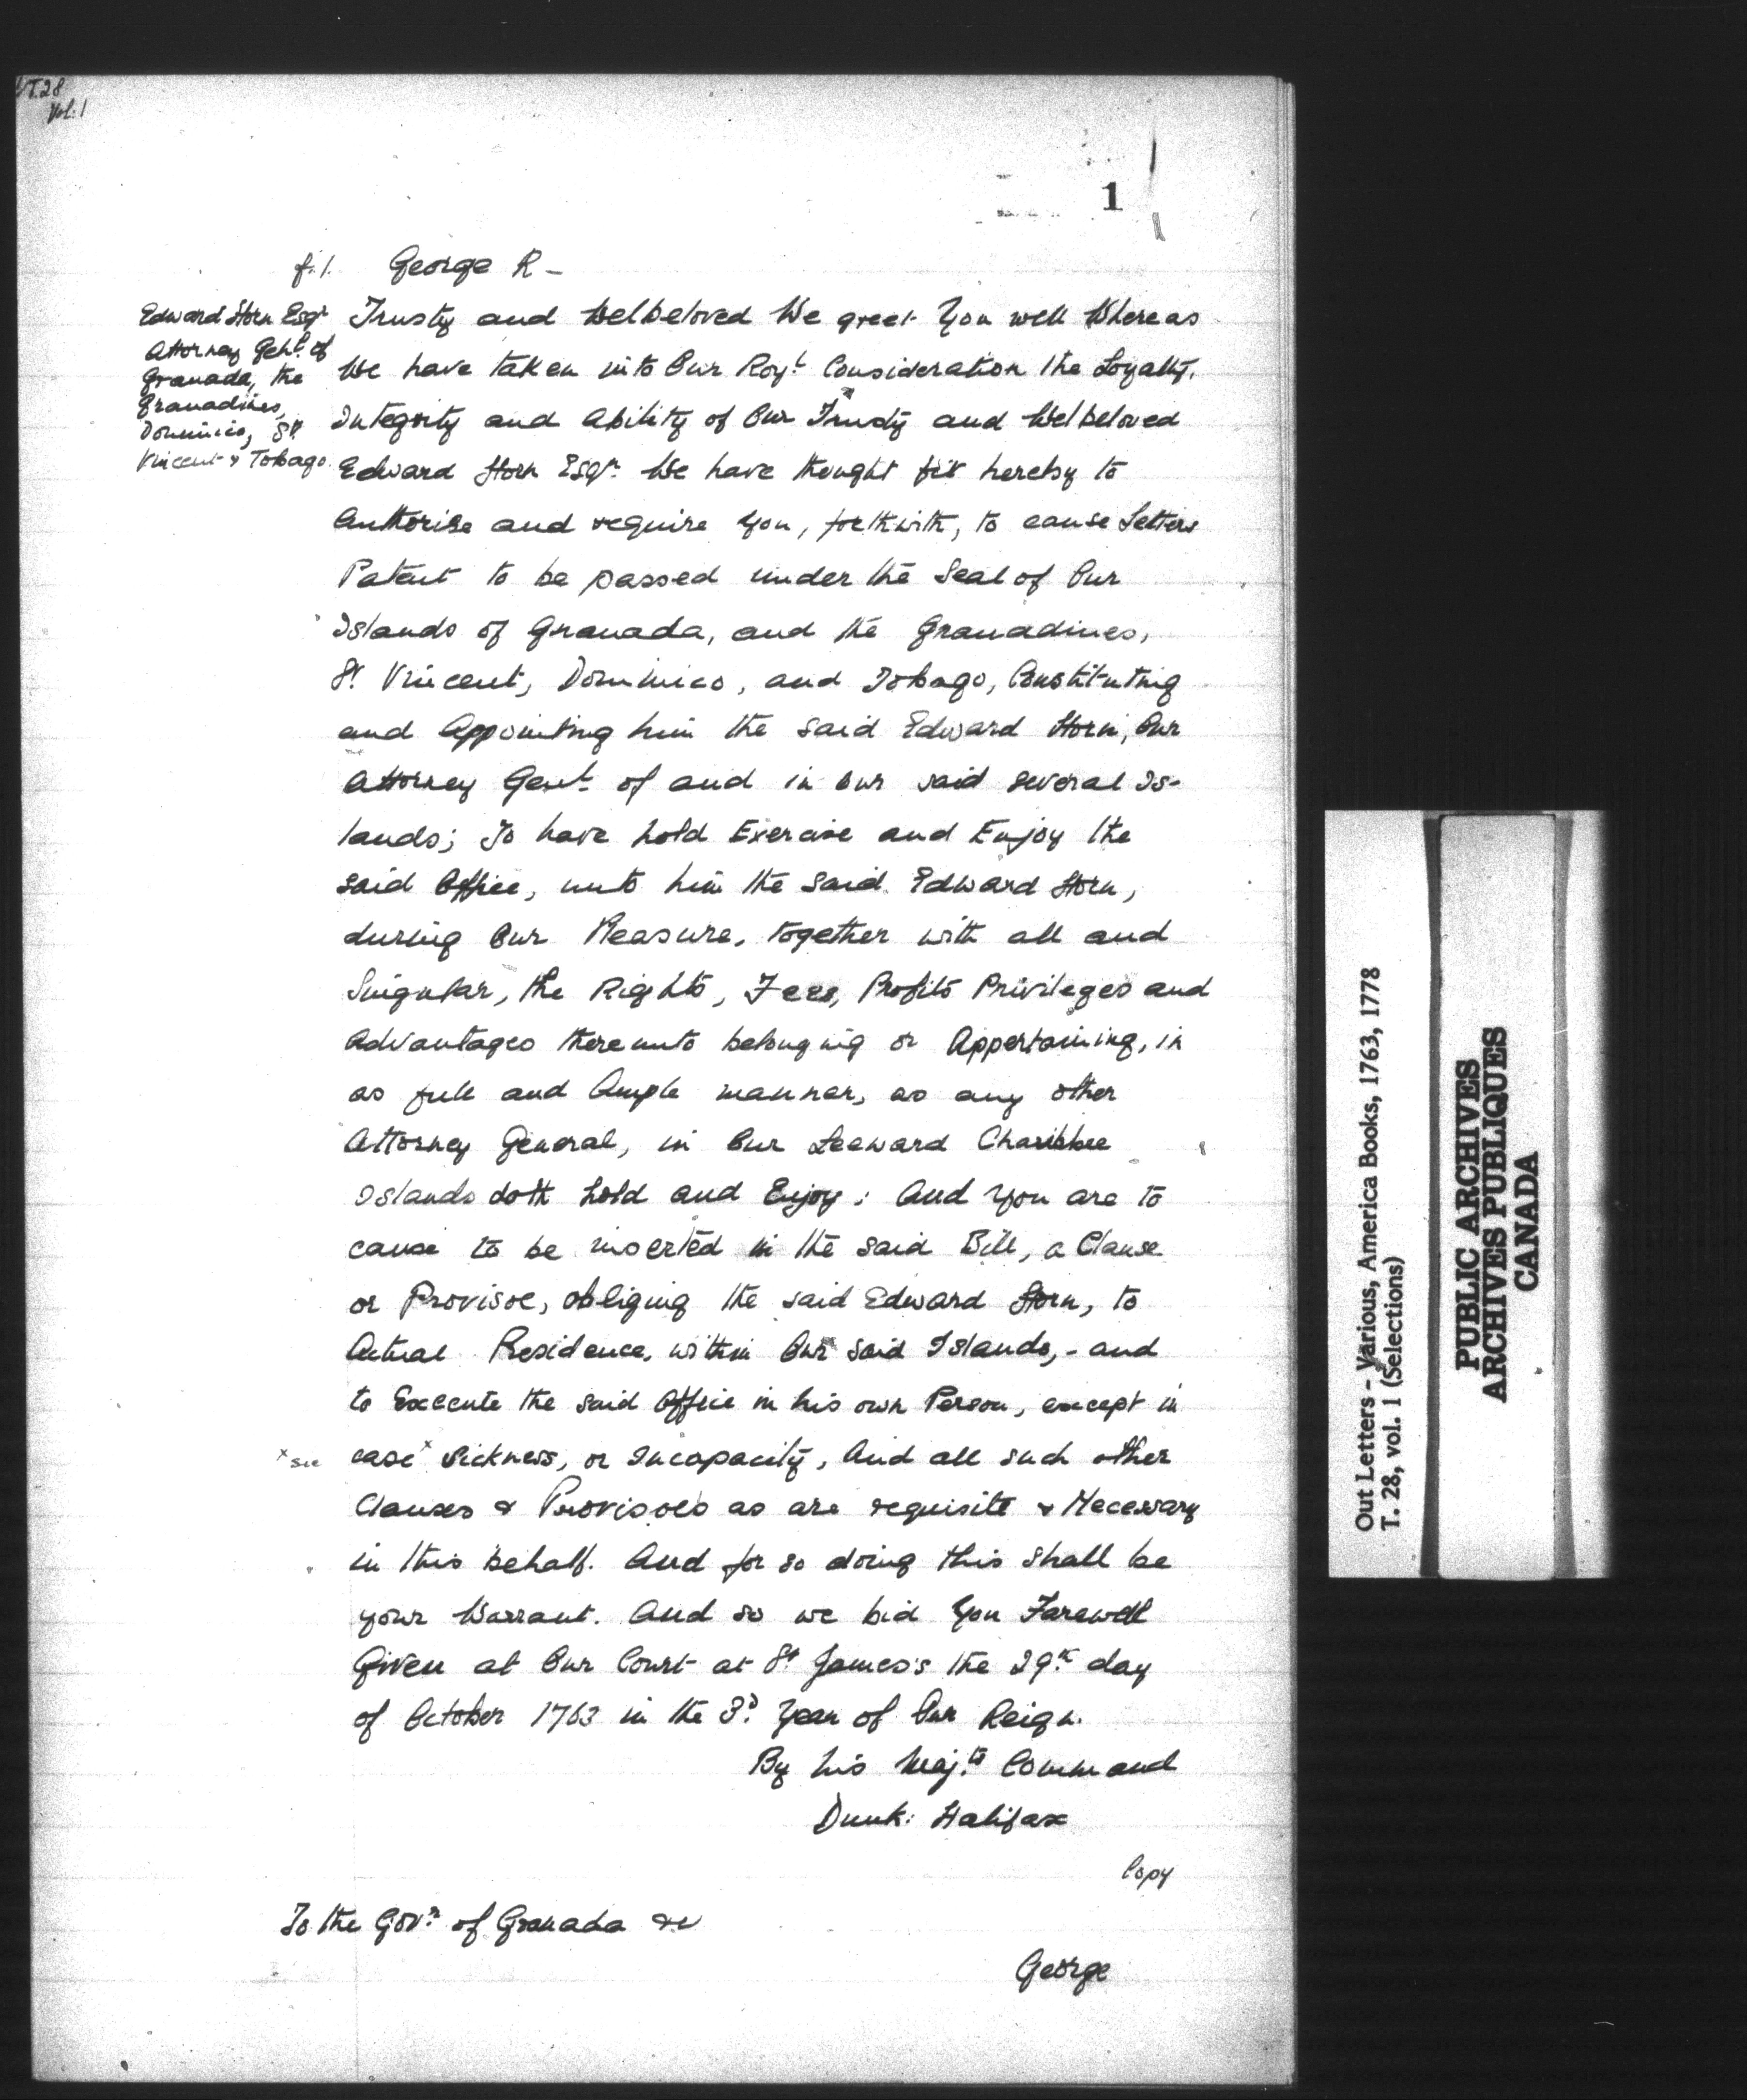 T.28
Vol: 1
1
f. 1. George R -
Edward Horn Esqr
Attorney Genl. of
Granada, the
Granadines,
Dominico, St.
Vincent & Tobago.
Trusty and Welbeloved We greet You well Whereas
We have taken into Our Royl. Consideration the Loyalty,
Integrity and Ability of Our Trusty and Welbeloved
Edward Horn Esqr. We have thought fit hereby to
Authorise and require You, forthwith, to cause Letters
Patent to be passed under the Seal of Our
Islands of Granada, and the Granadines,
St. Vincent, Dominico, and Tobago, Constituting
and Appointing him the said Edward Horn, Our
Attorney Genl. of and in our said several Is-
lands; To have hold Exercise and Enjoy the
said Office, unto him the said Edward Horn,
during Our Pleasure, together with all and
Singular, the Rights, Fees, Profits Privileges and
Advantages thereunto belonging or Appertaining, in
as full and Ample manner, as any other
Attorney General, in Our Leeward Charibbee
Islands doth hold and Enjoy: And You are to
cause to be inserted in the said Bill, a Clause
or Provisoe, obliging the said Edward Horn, to
Actual Residence, within Our said Islands, - and
to Execute the said Office in his own Person, except in
x sic case x Sickness, or Incapacity, And all such other
Clauses & Provisoes as are requisite & Necessary
in this behalf. And for so doing this shall be
your Warrant. And so we bid You Farewell
Given at Our Court at St. James's the 29th day
of October 1763 in the 3d. Year of Our Reign.
By his Majts. Command
Dunk: Halifax
Copy
To the Govr. of Granada &c
George
Out Letters - Various, America Books, 1763, 1778
T. 28, vol. 1 (Selections)
PUBLIC ARCHIVES
ARCHIVES PUBLIQUES
CANADA